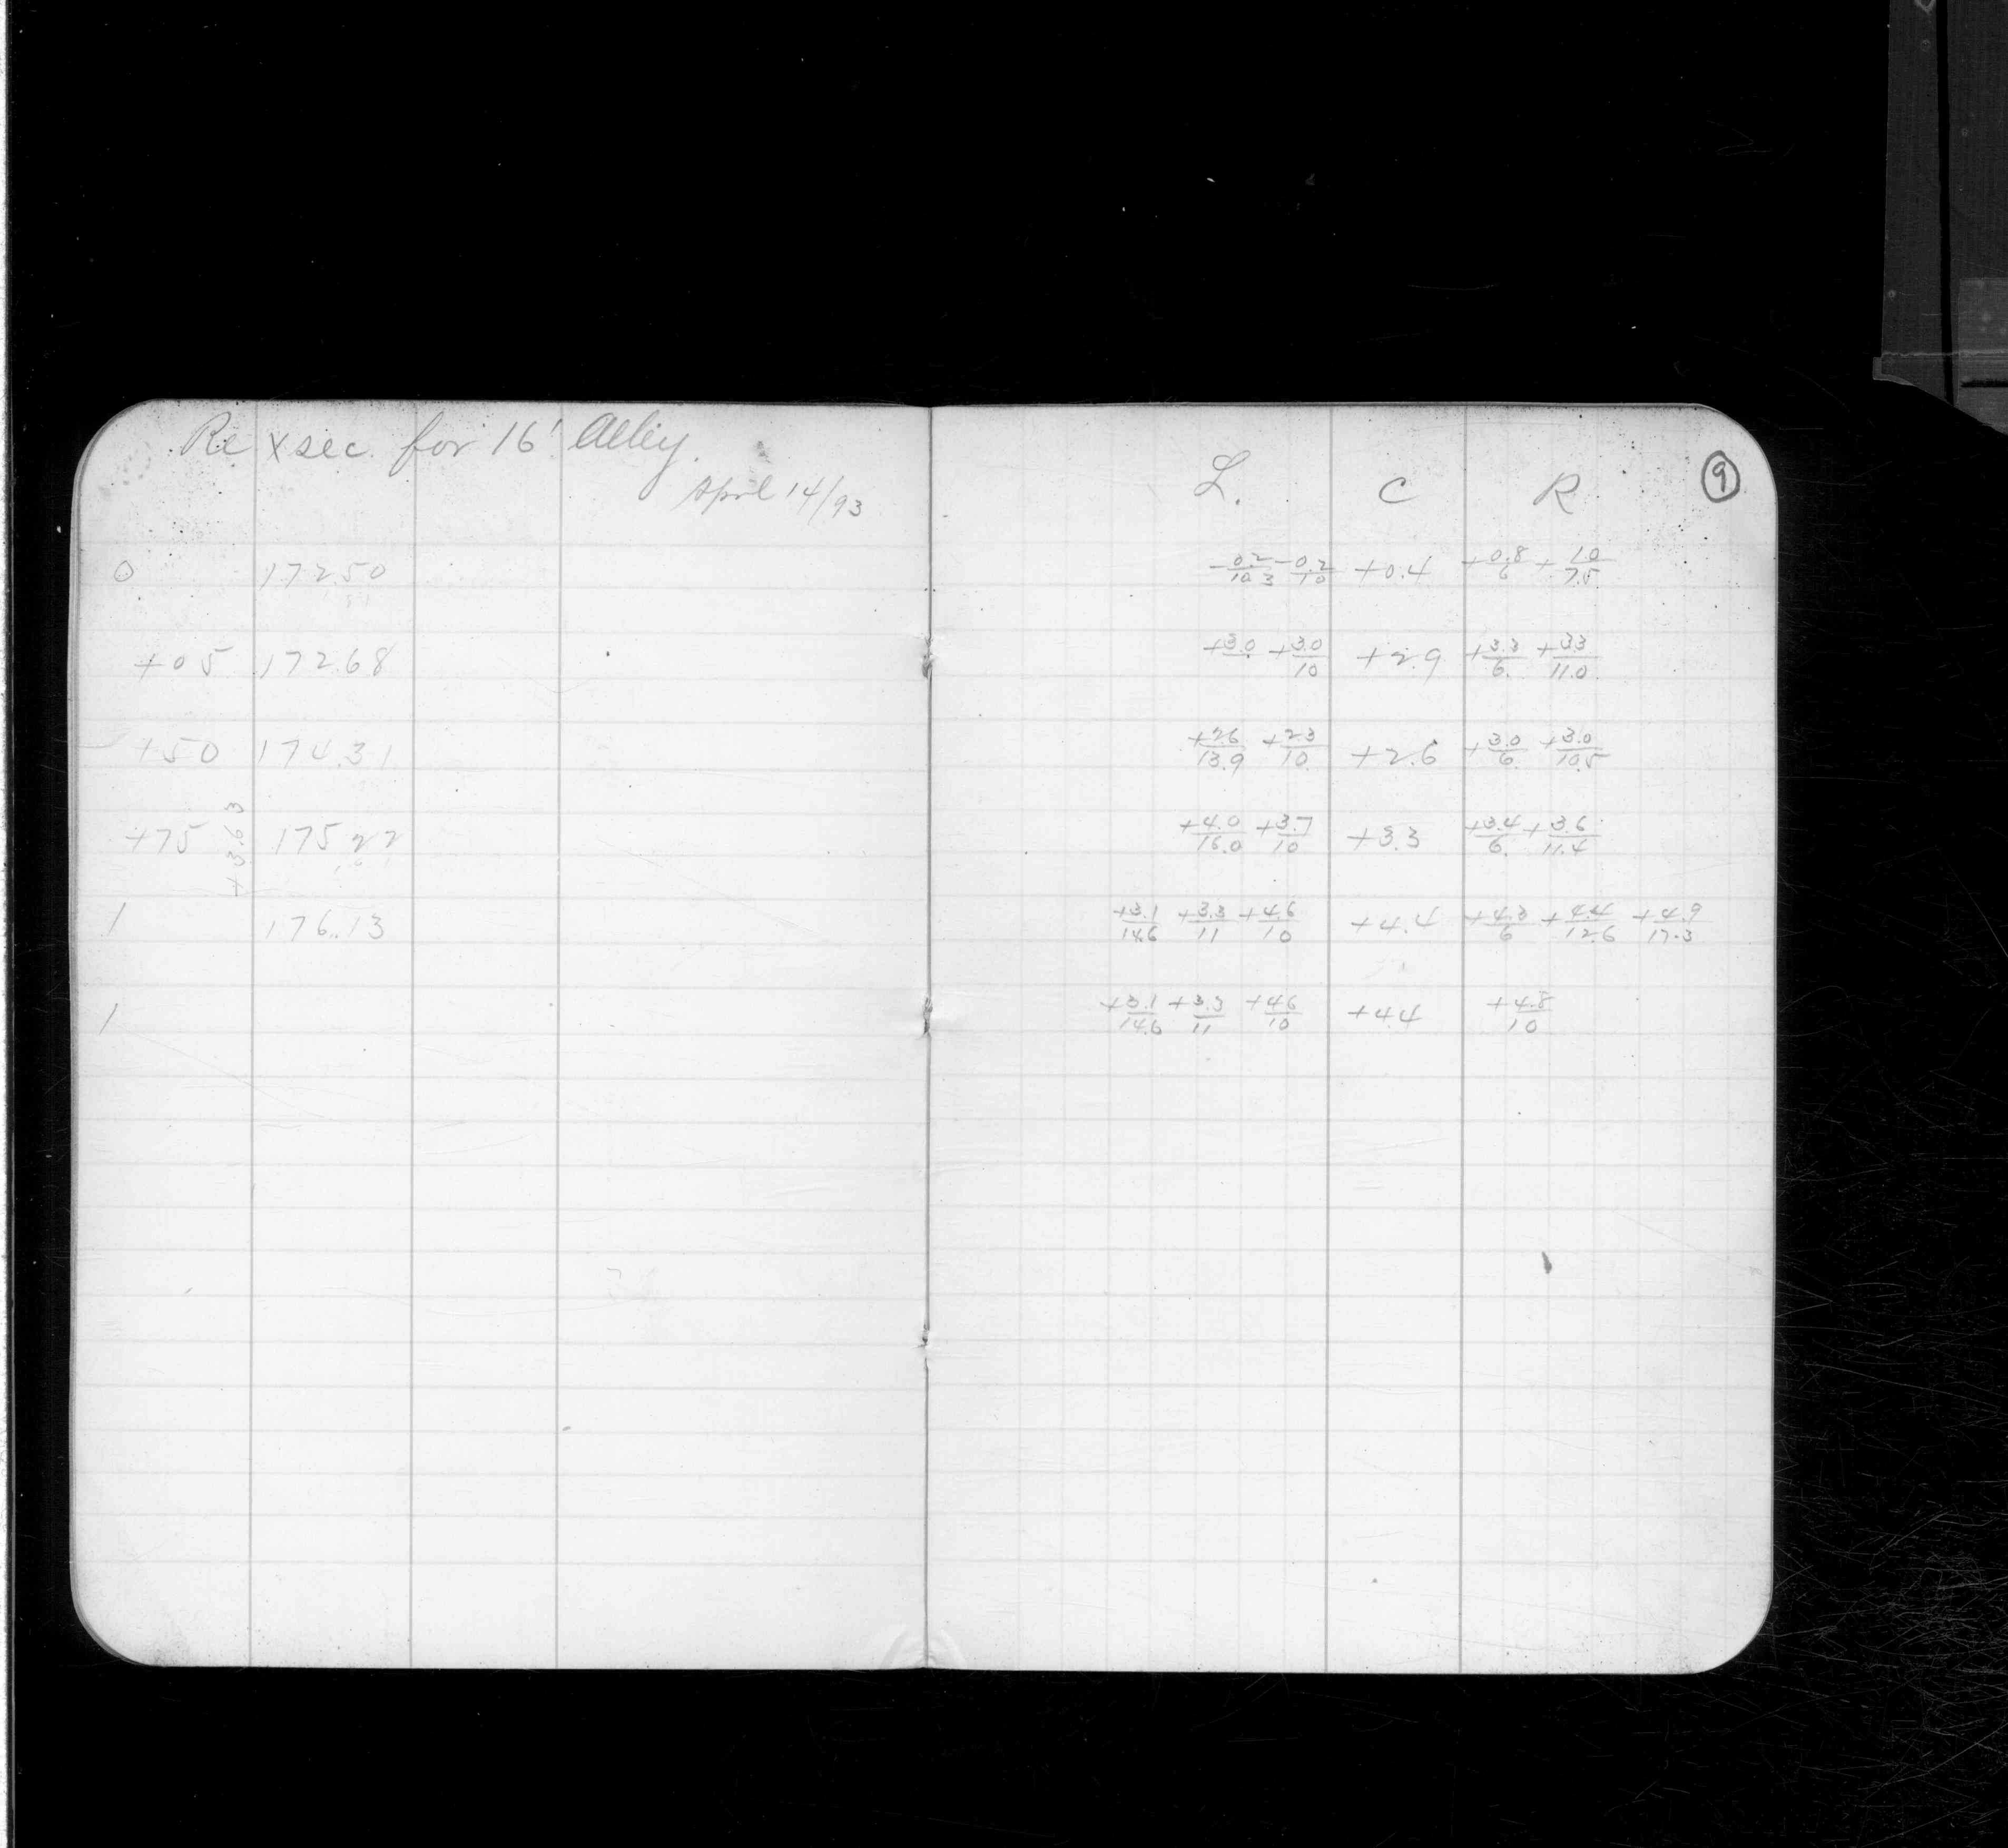 Re xsec. for 16' Alley.
April 14/93
L. C R 9
0 172.50 -0.2/10.3 -0.2/10 +0.4 +0.8/6 +1.0/7.5
+05 172.68 +3.0 +3.0/10 +2.9 +3.3/6. +3.3/11.0
+50 174.31 +2.6/13.9 +2.3/10 +2.6 +3.0/6. +3.0/10.5
+75 +3.63 175.22 +4.0/16.0 +3.7/10 +3.3 +3.4/6. +3.6/11.4
1 176.13 +3.1/14.6 +3.3/11 +4.6/10 +4.4 +4.3/6 +4.4/12.6 +4.9/17.3
1 +3.1/14.6 +3.3/11 +4.6/10 +4.4 +4.8/10